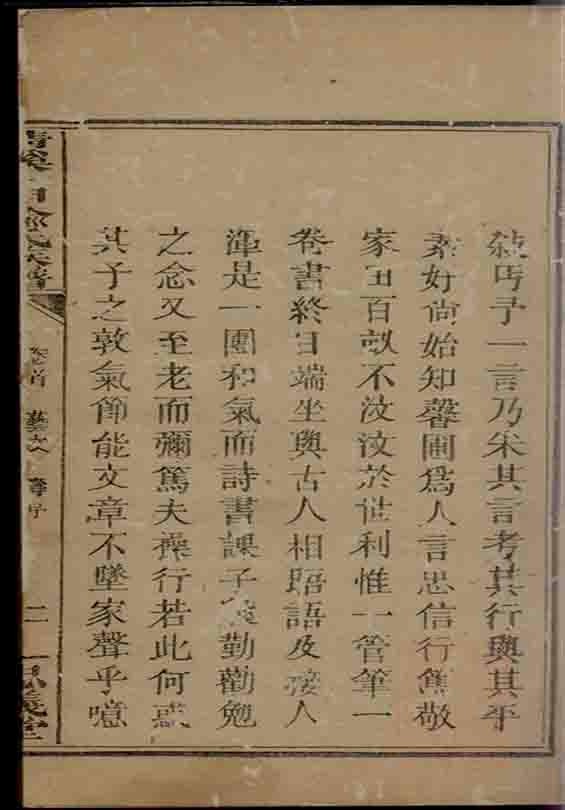 敍丐予一言乃朱其言考其行與其平
素好尚始知馨圃爲人言忠信行篤敬
家田百畝不汶汶於世利惟一管筆一
卷書終日端坐與古人相晤語及接人
渾是一團和氣而詩書課子 勤勸勉
之念又至老而彌篤夫操行若此何惑
其子之敦氣節能文章不墜家聲乎噫
卷首 藝文 壽序 二